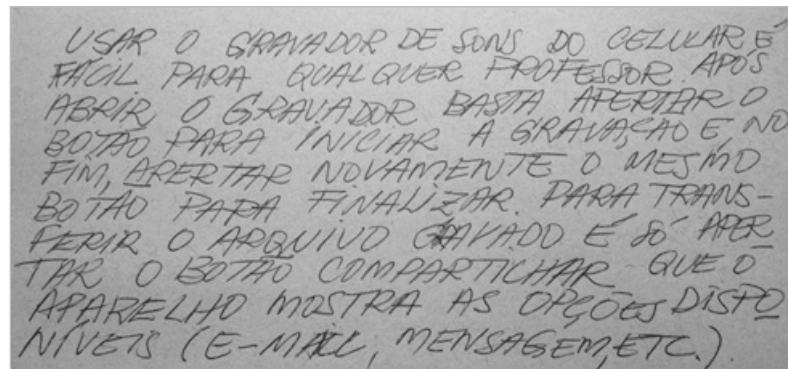 USAR O GRAVADOR DE SONS DO CELULAR É
FÁCIL PARA QUALQUER PROFESSOR. APÓS
ABRIR O GRAVADOR BASTA APERTAR O
BOTÃO PARA INICIAR A GRAVAÇÃO E, NO
FIM, APERTAR NOVAMENTE O MESMO
BOTÃO PARA FINALIZAR. PARA TRANS-
FERIR O ARQUIVO GRAVADO É SÓ APER
TAR O BOTÃO COMPARTILHAR QUE O
APARELHO MOSTRA AS OPÇÕES DISPO
NÍVEIS (E-MAIL, MENSAGEM, ETC.).